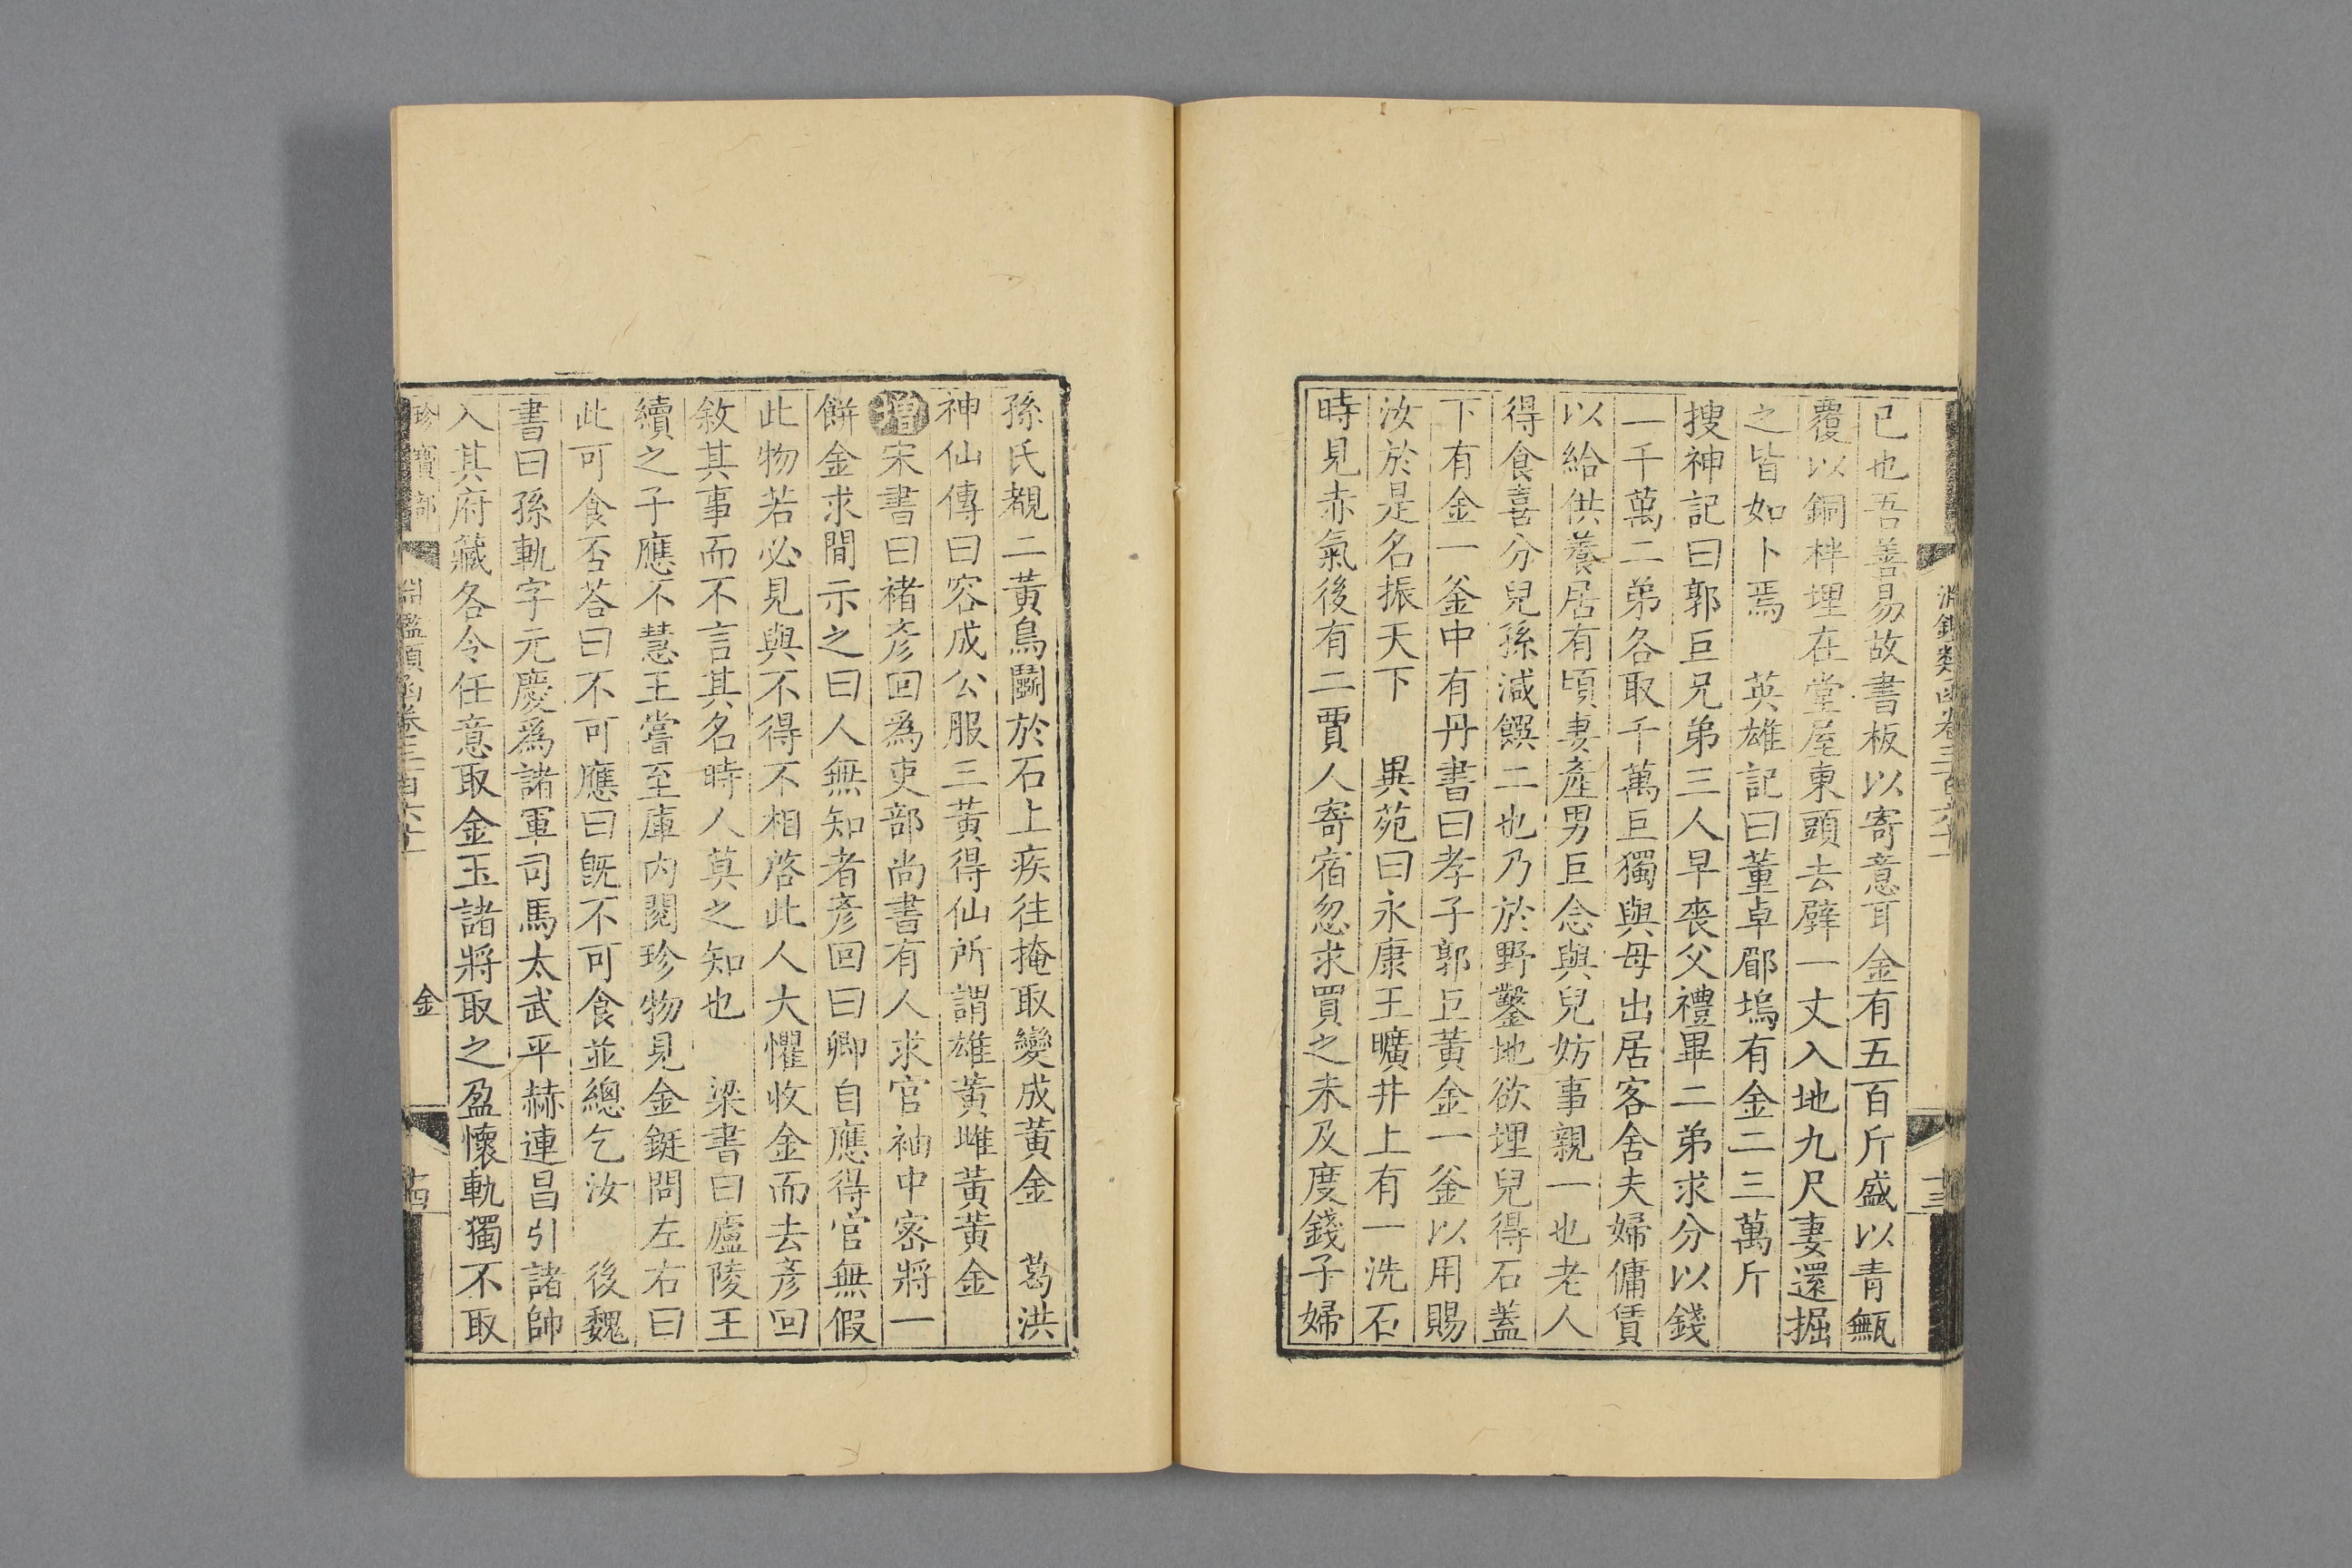 已也吾善易故書板以寄意耳金有五百斤盛以青甒
覆以銅柈埋在堂屋東頭去壁一丈入地九尺妻還掘
之皆如卜焉　英雄記曰董卓郿塢有金二三萬斤
搜神記曰郭巨兄弟三人早喪父禮畢二弟求分以錢
二千萬二弟各取千萬巨獨與母出居客舍夫婦傭賃
以給供養居有頃妻產男巨念與兒妨事親一也老人
得食喜分兒孫減饌二也乃於野鑿地欲埋兒得石蓋
下有金一釜中有丹書曰孝子郭巨黃金一釜以用賜
汝於是名振天下　異苑曰永康王曠井上有一洗石
時見赤氣後有二賈人寄宿忽求買之未及度錢子婦
孫氏覩二黃鳥鬭於石上疾往掩取變成黃金　葛洪
神仙傳曰容成公服三黃得仙所謂雄黃雌黃黃金
增宋書曰褚彥回爲吏部尚書有人求官袖中密將一
餅金求間示之曰人無知者彥回曰卿自應得官無假
此物若必見與不得不相啓此人大懼收金而去彥回
敘其事而不言其名時人莫之知也　梁書曰廬陵王
續之子應不慧王嘗至庫內閱珍物見金鋌問左右曰
此可食否荅曰不可應曰旣不可食並總乞汝　後魏
書曰孫軌字元慶爲諸軍司馬太武平赫連昌引諸帥
入其府藏各令任意取金玉諸將取之盈懷軌獨不取
珍寶部　淵鑑類函卷三百六十一　金　十四